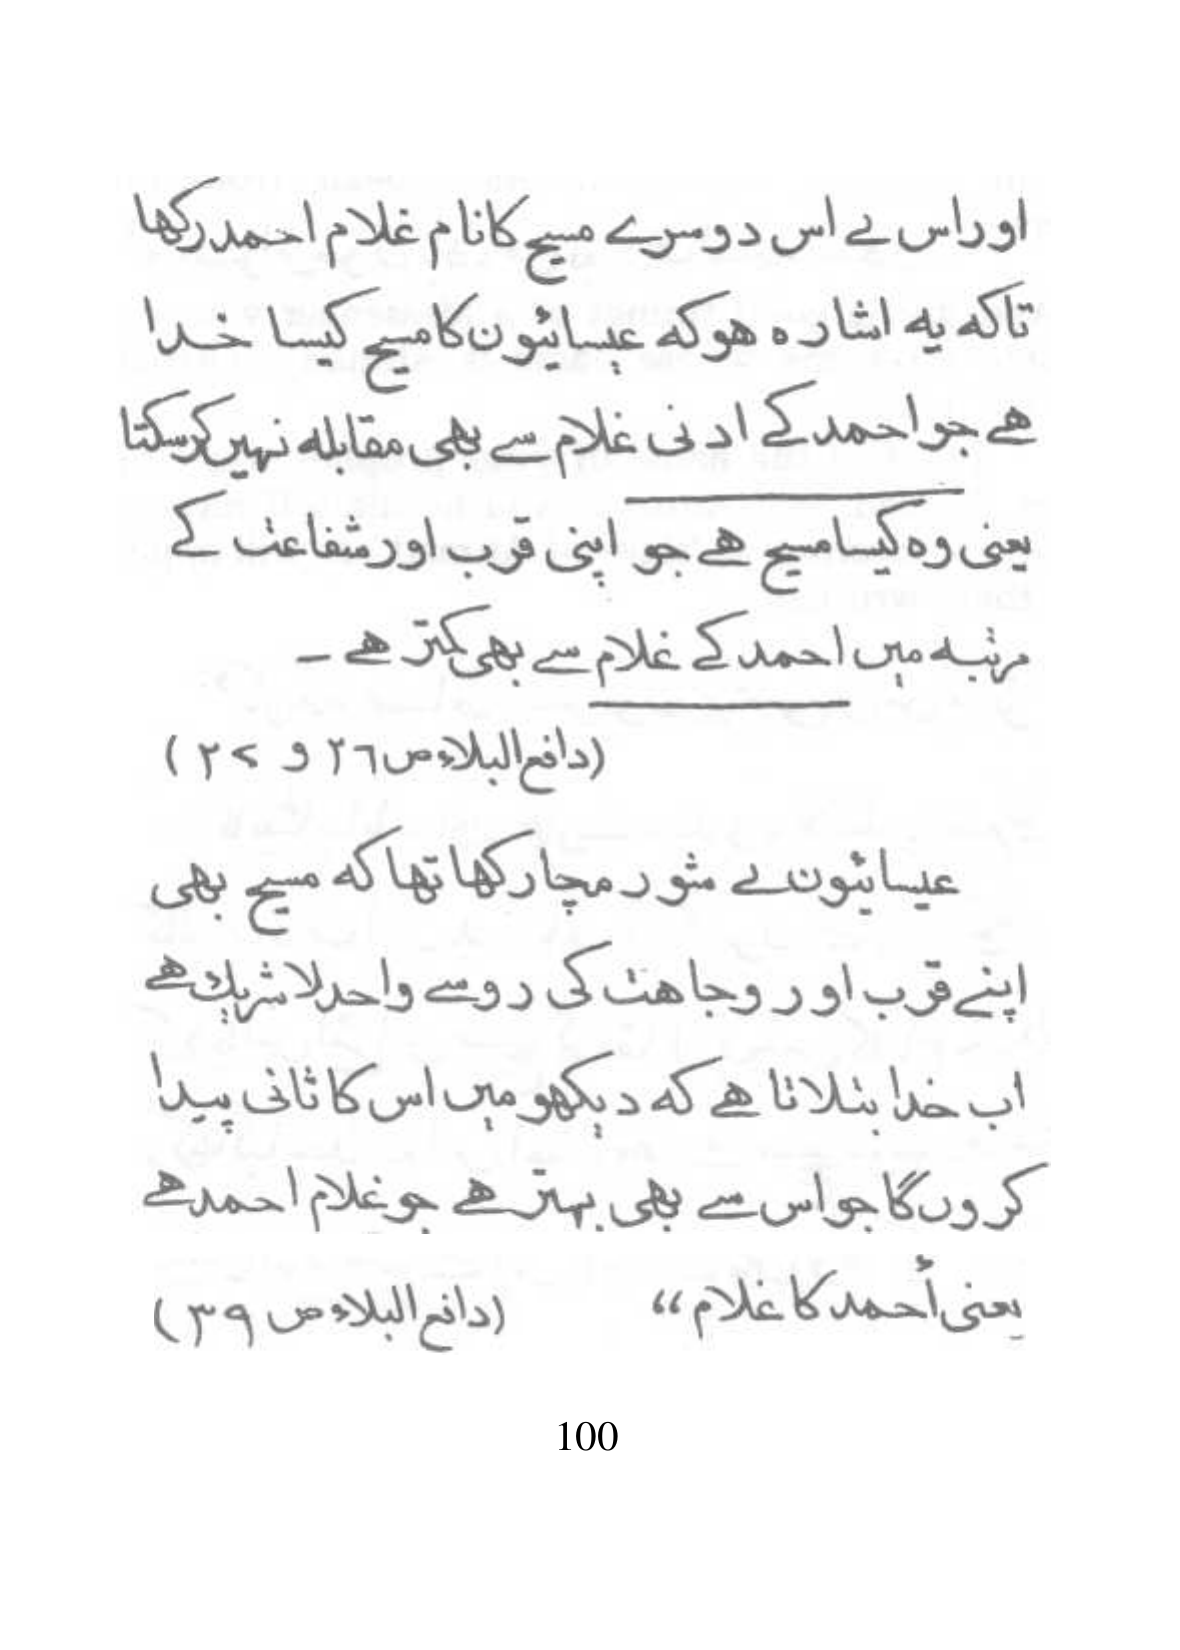 اور اس نے اس دوسرے مسیح کا نام غلام احمد رکھا
تاکہ یہ اشارہ ھو کہ عیسائیون کا مسیح کیسا خدا
ھے جو احمد کے ادنی غلام سے بھی مقابلہ نہیں کر سکتا
یعنی وہ کیسا مسیح ھے جو اپنی قرب اور شفاعت کے
مرتبہ میں احمد کے غلام سے بھی کمتر ھے ـ
(دافع البلاء ص ۲٦ و ۲۷)
عیسائیون نے شور مچا رکھا تھا کہ مسیح بھی
اپنے قرب اور وجاھت کی رو سے واحد لا شریك ھے
اب خدا بتلاتا ھے کہ دیکھو میں اس کا ثانی پیدا
کروں گا جو اس سے بھی بہتر ھے جو غلام احمد ھے
یعنی أحمد کا غلام ،، (دافع البلاء ص ۳۹)
100